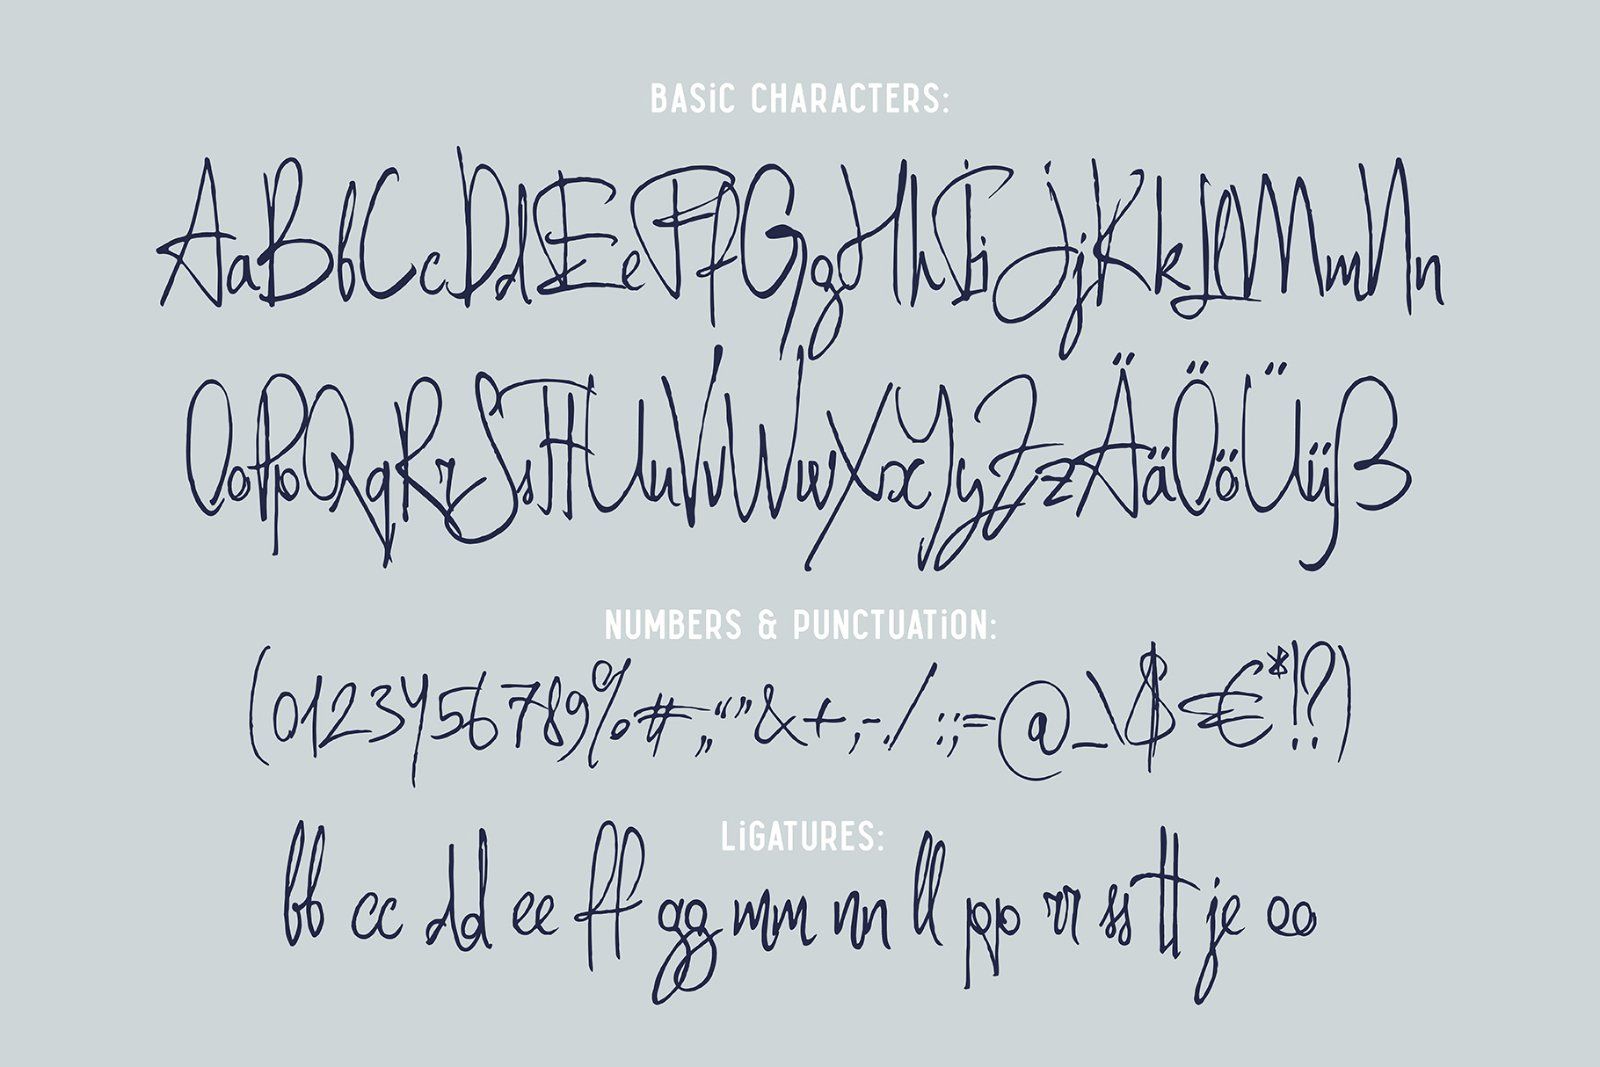 BASiC CHARACTERS:
AaBbCcDdEeFfGgHhIiJjKkLlMmNn
OoPpQqRrSsTtUuVvWwXxYyZzÄäÖöÜüß
NUMBERS & PUNCTUATiON:
(0123456789%#„“”&+,-./:;=@_\$€*!?)
LiGATURES:
bb cc dd ee ff gg mm nn ll pp rr ss tt je oo